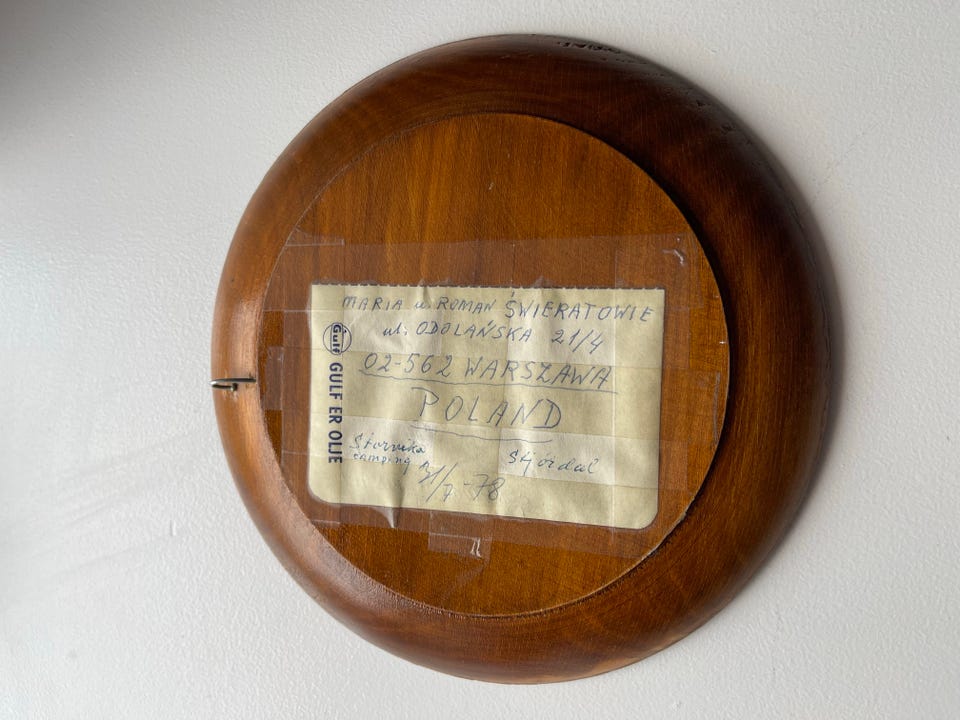 MARIA u. ROMAN ŚWIERATOWIE
ul. ODOLAŃSKA 21/4
02-562 WARSZAWA
POLAND
Størvika Stjördal
camping 31/7-78
Gulf GULF ER OLJE